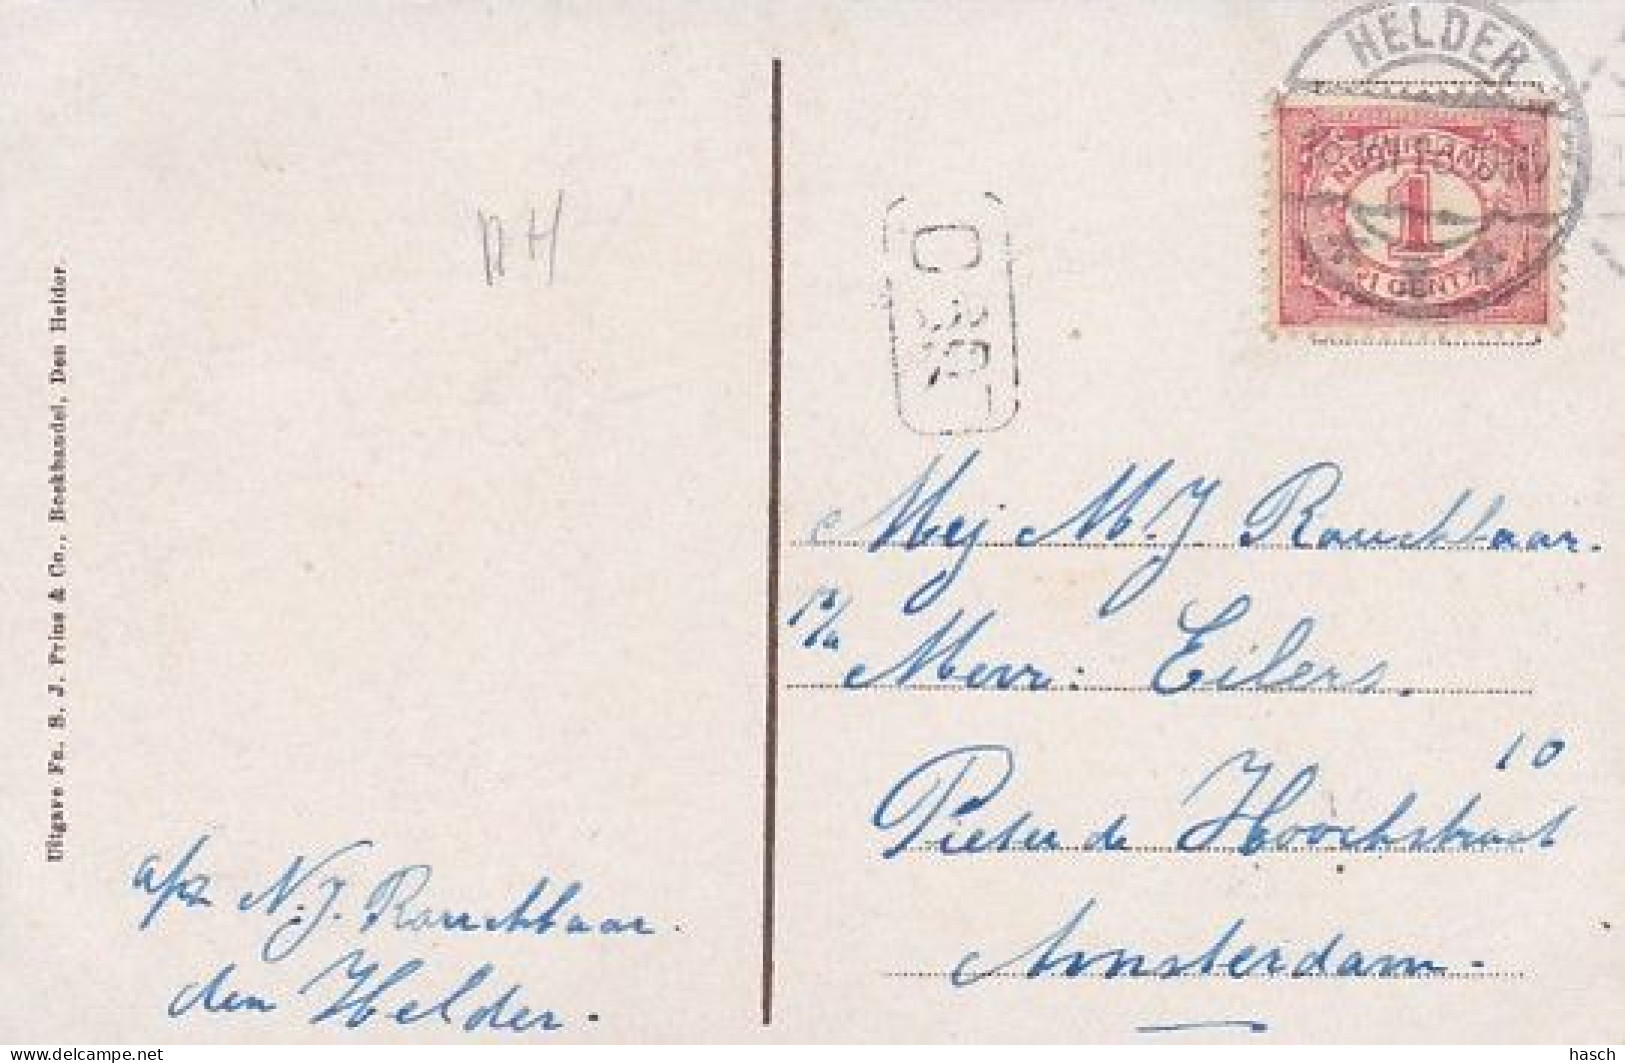 HELDER
NEDERLAND
1
CENT
Uitgave Fa. B. J. Prins & Co., Boekhandel, Den Helder
Mej M. J Rouckbaar.
p/a Mevr: Eilers.
10
Pieter de Hoochstraat
Amsterdam.
a/z N. J. Rouckbaar.
den Helder.
www.delcampe.net
hasch